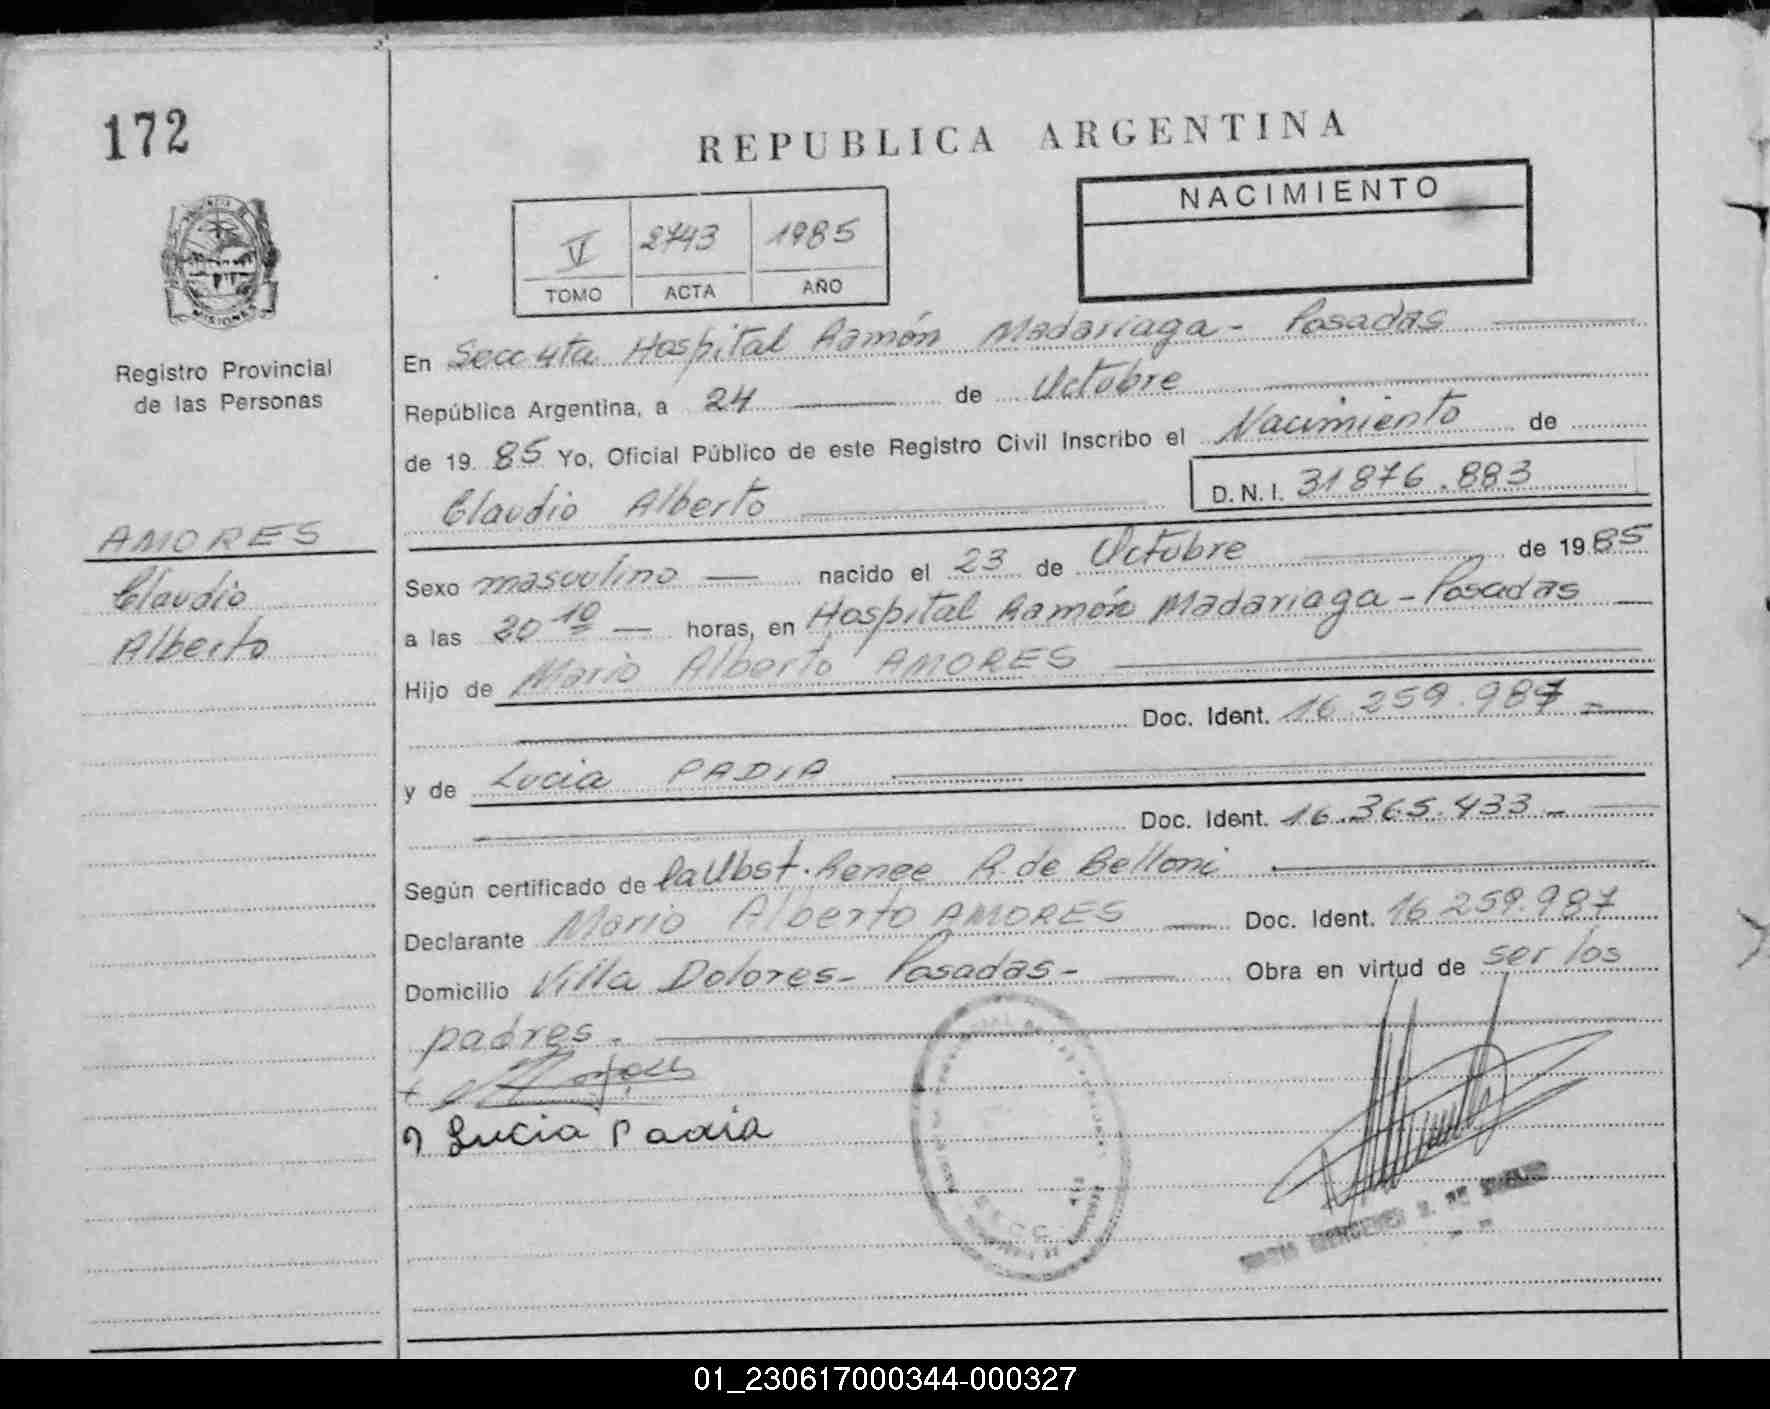 172
REPUBLICA ARGENTINA
NACIMIENTO
VI 2743 1985
TOMO ACTA AÑO
Registro Provincial
de las Personas
AMORES
Claudio
Alberto
En Secc 4ta Hospital Ramón Madariaga - Posadas
República Argentina, a 24 de Octubre
de 19 85 Yo, Oficial Público de este Registro Civil Inscribo el Nacimiento de
Claudio Alberto D.N.I. 31876.883
Sexo masculino nacido el 23 de Octubre de 19 85
a las 20 10 horas, en Hospital Ramón Madariaga - Posadas
Hijo de Mario Alberto AMORES
Doc. Ident. 16.259.987
y de Lucia PADIA
Doc. Ident. 16.365.433
Según certificado de la Obst. Renee R. de Belloni
Declarante Mario Alberto AMORES Doc. Ident. 16.259.987
Domicilio Villa Dolores - Posadas - Obra en virtud de ser los
padres.
Lucia Padia
01_230617000344-000327